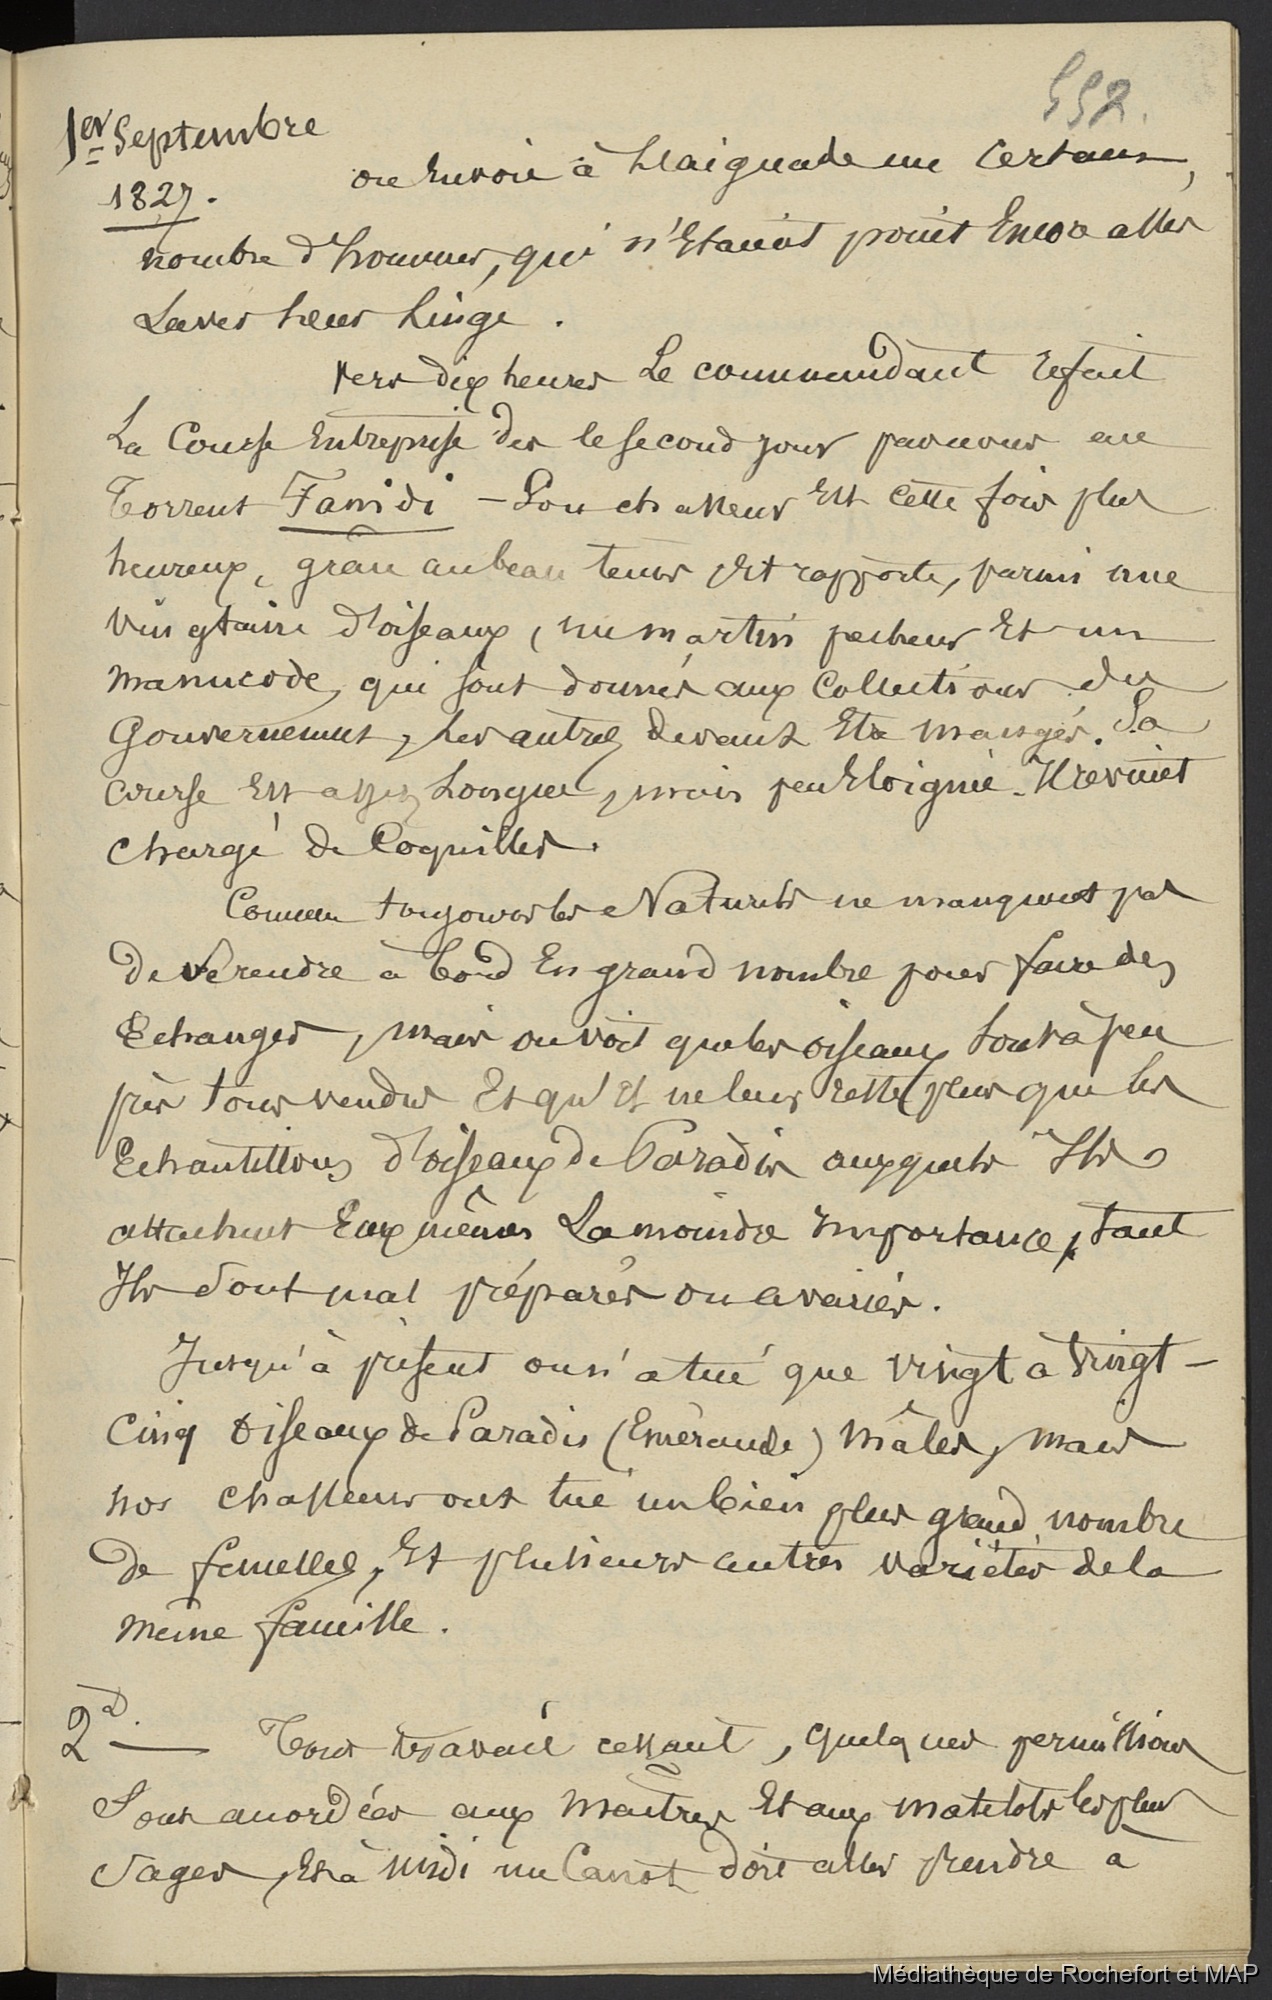 552.
1er Septembre
1827.
on Envoie à L'aiguade un Certain,
nombre d'hommes, qui n'Etaient point Encore aller
Laver Leur Linge.
Vers dix heures Le commandant refait
La Course Entreprise des le second jour parcouru au
Torrent Fanidi - Son chasseur Est cette fois plus
heureux, grâce au beau tems Et rapporte, parmi une
vingtaine d'oiseaux, un martin pecheur Et un
manucode, qui sont donnés aux Collections du
Gouvernement, Les autres devant Etre mangés. Sa
course Est assez Longue, mais peu Eloignée. Il revient
chargé de Coquilles.
Comme toujours les Naturels ne manquent pas
de se rendre à bord En grand nombre pour faire des
Echanges, mais on voit que les oiseaux sont à peu
près tous vendus Et qu'il ne leur reste plus que les
Echantillons d'oiseaux de Paradis auxquels Ils
attachent Eux mêmes La moindre importance, tant
Ils sont mal préparés ou avariés.
Jusqu'à présent on n'a tué que vingt à vingt-
Cinq oiseaux de Paradis (Emeraude) mâles, mais
nos chasseurs ont tué un bien plus grand nombre
de femelles, Et plusieurs autres variétés de la
même famille.
2d. Tout travail cessant, quelques permissions
Sont accordées aux Maitres Et aux matelots les plus
Sages, Et à midi un Canot doit aller prendre à
Médiathèque de Rochefort et MAP